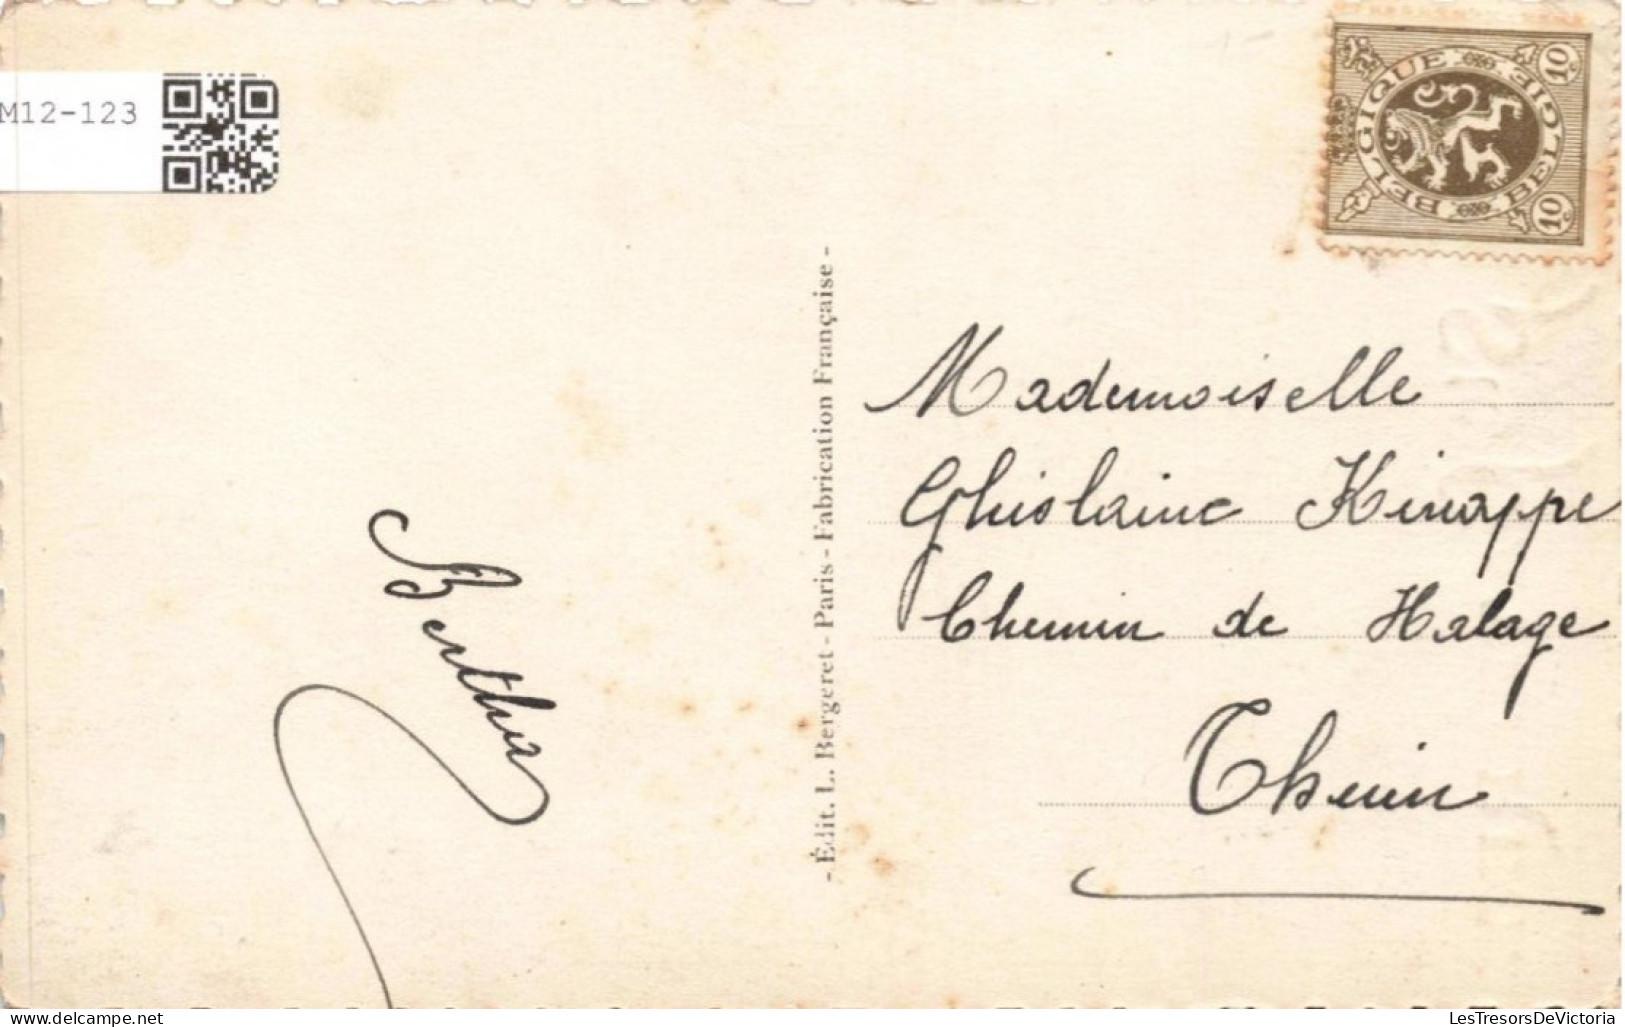 M12-123
BELGIQUE
BELGIE
10c
10c
- Édit. L. Bergeret - Paris - Fabrication Française -
Mademoiselle
Ghislaine Kinappe
Chemin de Halage
Thuin
Bertha
delcampe.net
LesTresorsDeVictoria